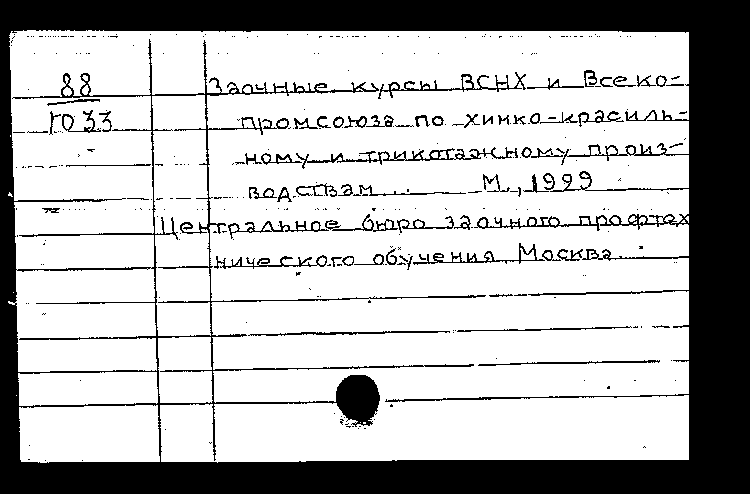 88
1033
Заочные курсы ВСНХ и Всеко-
промсоюза по химко-красиль-
ному и трикотажному произ-
водствам... М., 1999
Центральное бюро заочного профтех
нического обучения, Москва.